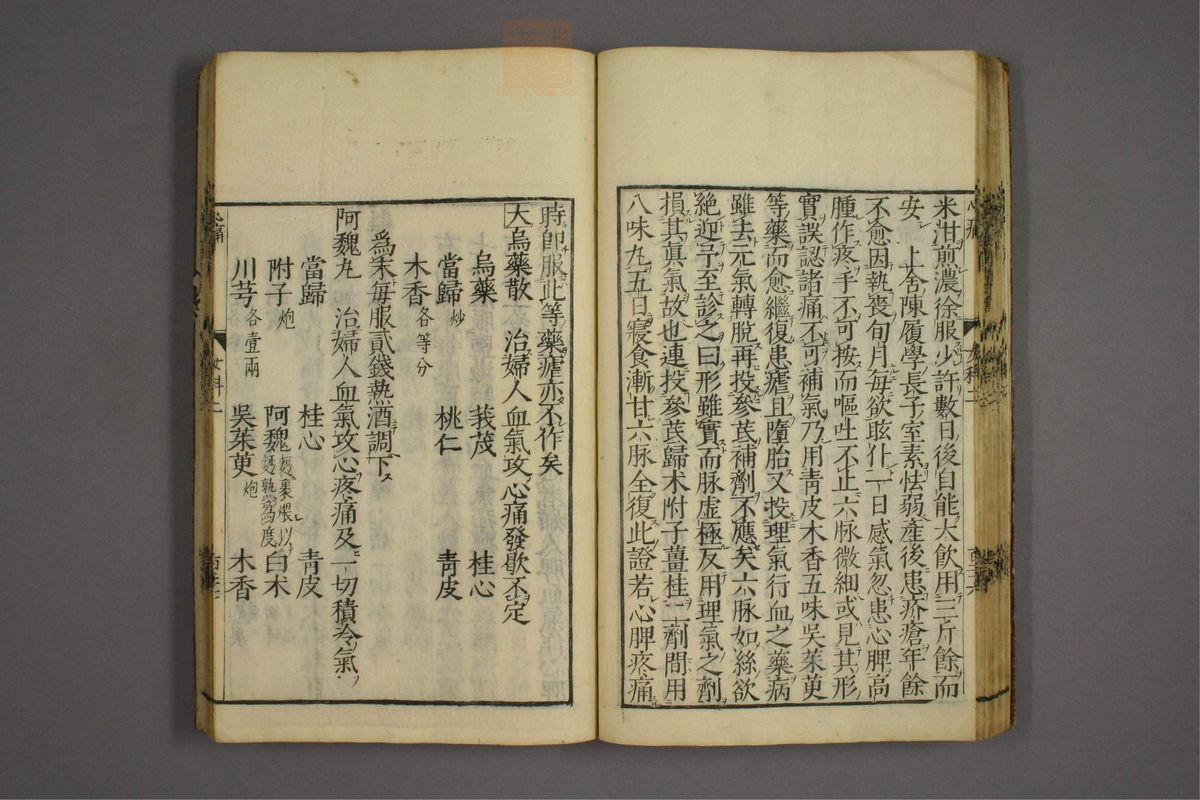 米泔煎濃徐服少許數日後自能大飲用三斤餘而
安 上舍陳履學長子室素怯弱產後患疥瘡年餘
不愈因執喪旬月每欲眩仆一日感氣忽患心脾高
腫作疼手不可按而嘔吐不止六脉微細或見其形
實誤認諸痛不可補氣乃用青皮木香五味吳茱萸
等藥而愈繼復患瘧且墮胎又投理氣行血之藥病
雖去元氣轉脫再投參芪補劑不應矣六脉如絲欲
絕迎予至診之曰形雖實而脉虛極反用理氣之劑
損其眞氣故也連投參芪歸朮附子薑桂二劑間用
八味丸五日寢食漸甘六脉全復此證若心脾疼痛
時卽服此等藥瘧亦不作矣
大烏藥散 治婦人血氣攻心痛發歇不定
烏藥 莪茂 桂心
當歸炒 桃仁 青皮
木香各等分
爲末每服貳錢熱酒調下
阿魏丸 治婦人血氣攻心疼痛及一切積冷氣
當歸 桂心 青皮
附子炮 阿魏麪裹煨以麪熟爲度 白朮
川芎各壹兩 吳茱萸炮 木香
心痛 女科二